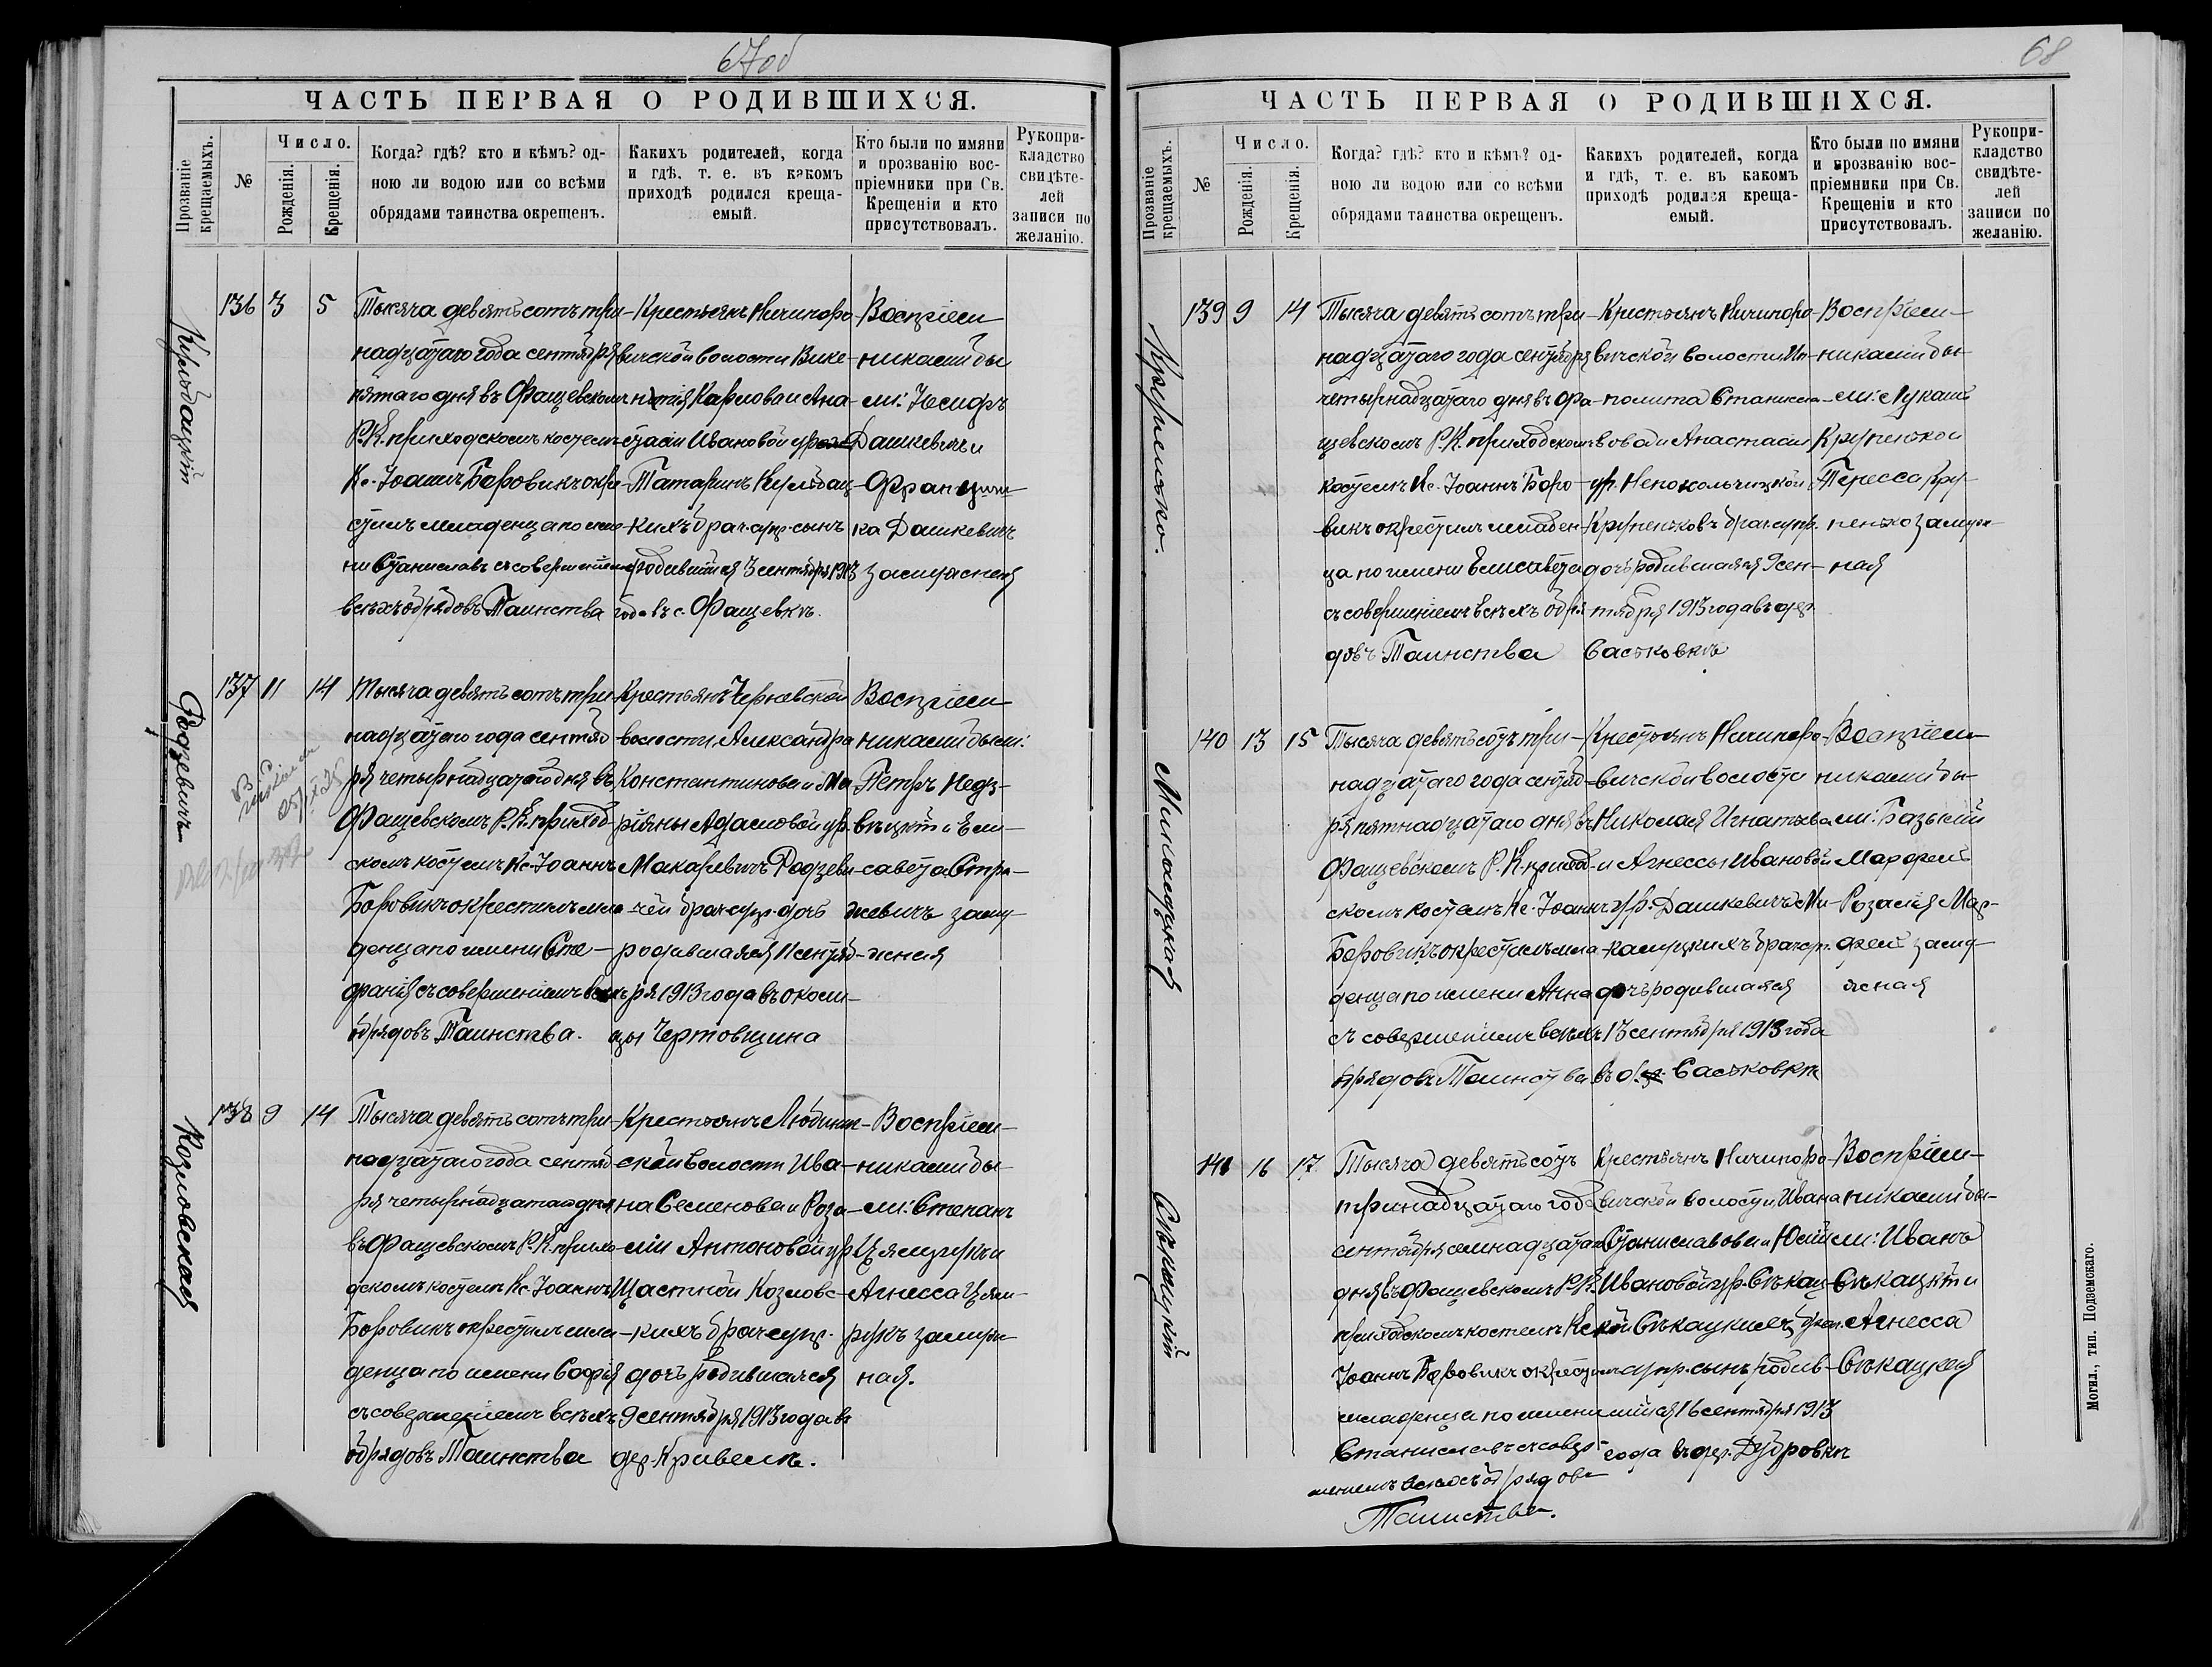 67об
ЧАСТЬ ПЕРВАЯ О РОДИВШИХСЯ.
Прозваніе крещаемыхъ.
№
Число.
Рожденія.
Крещенія.
Когда? гдѣ? кто и кѣмъ? од-
ною ли водою или со всѣми
обрядами таинства окрещенъ.
Какихъ родителей, когда
и гдѣ, т. е. въ какомъ
приходѣ родился креща-
емый.
Кто были по имяни
и прозванію вос-
пріемники при Св.
Крещеніи и кто
присутствовалъ.
Рукопри-
кладство
свидѣте-
лей
записи по
желанію.
136 3 5
Тысяча девятьсотъ три-
надцатаго года сентября
пятаго дня въ Фащевскомъ
Р.К. приходскомъ костелѣ
Кс. Іоаннъ Боровикъ окре-
стилъ младенца по име-
ни Станиславъ съ совершеніемъ
всѣхъ обрядовъ Таинства
Крестьянъ Ничипоро-
вичской волости Вике-
нтія Карлова и Ана-
стасіи Ивановой ур.
Татаринъ
кихъ брач. супр. сынъ
родившійся 3 сентября 1913
года въ с. Фащевкѣ.
Воспріем-
никами бы
ли: Іосифъ
Дашкевичъ и
Францишка
Дашкевичъ
замужняя
Родзевичъ
137 11 14
Тысяча девятьсотъ три-
надцатаго года сентяб-
ря четырнадцатаго дня въ
Фащевскомъ Р.К. приход-
скомъ костелѣ Кс. Іоаннъ
Боровикъ окрестилъ мла-
денца по имени Сте-
фанія съ совершеніемъ всѣхъ
обрядовъ Таинства.
Крестьянъ Черневской
волости Александра
Константинова и Ма-
ріяны Адамовой ур.
Макаревичъ Родзеви-
чей брач. супр. дочь
родившаяся 11 сентяб-
ря 1913 года въ околи-
цы Чертовщина
Воспріем-
никами были:
Петръ Недз-
вѣцкій и Ели-
савета Стри-
жевичъ заму-
жняя
Козловская
138 9 14
Тысяча девятьсотъ три-
надцатаго года сентяб-
ря четырнадцатаго дня
въ Фащевскомъ Р.К. прихо-
дскомъ костелѣ Кс. Іоаннъ
Боровикъ окрестилъ мла-
денца по имени Софія
съ совершеніемъ всѣхъ
обрядовъ Таинства
Крестьянъ Любинич-
ской волости Ива-
на Семенова и Роза-
ліи Антоновой ур.
Щастной Козловс-
кихъ брач. супр.
дочь родившаяся
9 сентября 1913 года въ
дер. Кривель.
Воспріем-
никами бы-
ли: Степанъ
Цямцюркъ и
Агнесса Цям-
цюркъ замуж-
ная.
68
ЧАСТЬ ПЕРВАЯ О РОДИВШИХСЯ.
Прозваніе крещаемыхъ.
№
Число.
Рожденія.
Крещенія.
Когда? гдѣ? кто и кѣмъ? од-
ною ли водою или со всѣми
обрядами таинства окрещенъ.
Какихъ родителей, когда
и гдѣ, т. е. въ какомъ
приходѣ родился креща-
емый.
Кто были по имяни
и прозванію вос-
пріемники при Св.
Крещеніи и кто
присутствовалъ.
Рукопри-
кладство
свидѣте-
лей
записи по
желанію.
Крупенько.
139 9 14
Тысяча девятьсотъ три-
надцатаго года сентября
четырнадцатаго дня въ Фа-
щевскомъ Р.К. приходскомъ
костелѣ Кс. Іоаннъ Боро-
викъ окрестилъ младен-
ца по имени Елисавета
съ совершеніемъ всѣхъ обря-
довъ Таинства
Крестьянъ Ничипоро-
вичской волости Ип-
полита Станисла-
вова и Анастасіи
ур. Непокольчицкой
Крупеньковъ брач. супр.
дочь родившаяся 9 сен-
тября 1913 года въ дер.
Саськовкѣ
Воспріем-
никами бы-
ли: Лукашъ
Крупенько и
Тересса Кру-
пенько замуж-
ная
Милашуцкая
140 13 15
Тысяча девятьсотъ три-
надцатаго года сентяб-
ря пятнадцатаго дня въ
Фащевскомъ Р.К. приход-
скомъ костелѣ Кс. Іоаннъ
Боровикъ окрестилъ мла-
денца по имени Анна
съ совершеніемъ всѣхъ
обрядовъ Таинства
Крестьянъ Ничипоро-
вичской волости
Николая Игнатова
и Агнессы Ивановой
ур. Дашкевичъ Ми-
брач. супр.
дочь родившаяся
13 сентября 1913 года
въ дер. Саськовкѣ
Воспріем-
никами бы-
ли: Базылій
Марфель
Розалія Мар-
фель заму-
жная
Сѣкацкій
141 16 17
Тысяча девятьсотъ
тринадцатаго года
сентября семнадцатаго
дня въ Фащевскомъ Р.К.
приходскомъ костелѣ Кс.
Іоаннъ Боровикъ окрестилъ
младенца по имени
Станиславъ съ совер-
шеніемъ всѣхъ обрядовъ
Таинства.
Крестьянъ Ничипоро-
вичской волости Ивана
Станиславова и Юліи
Ивановой ур. Сѣкац-
кой Сѣкацкихъ брач.
супр. сынъ родив-
шійся 16 сентября 1913
года въ дер. Дубровкѣ
Воспріем-
никами бы-
ли: Иванъ
Сѣкацкій и
Агнесса
Сѣкацкая
Могил., тип. Подземскаго.